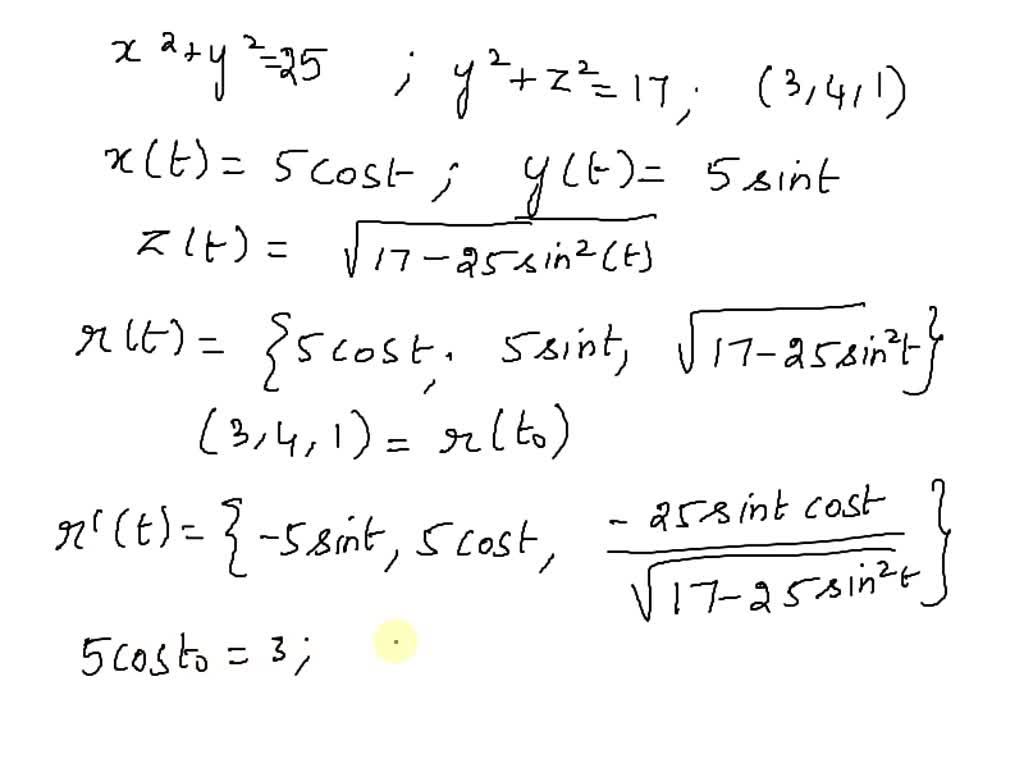 x²+y²=25 ; y²+z²=17; (3,4,1)
x(t)= 5cost; y(t)= 5sint
z(t)= √(17-25sin²(t))
r(t)= {5cost, 5sint, √(17-25sin²t)}
(3,4,1)= r(t₀)
r'(t)= {-5sint, 5cost, -25sint cost/√(17-25sin²t)}
5cost₀ = 3;